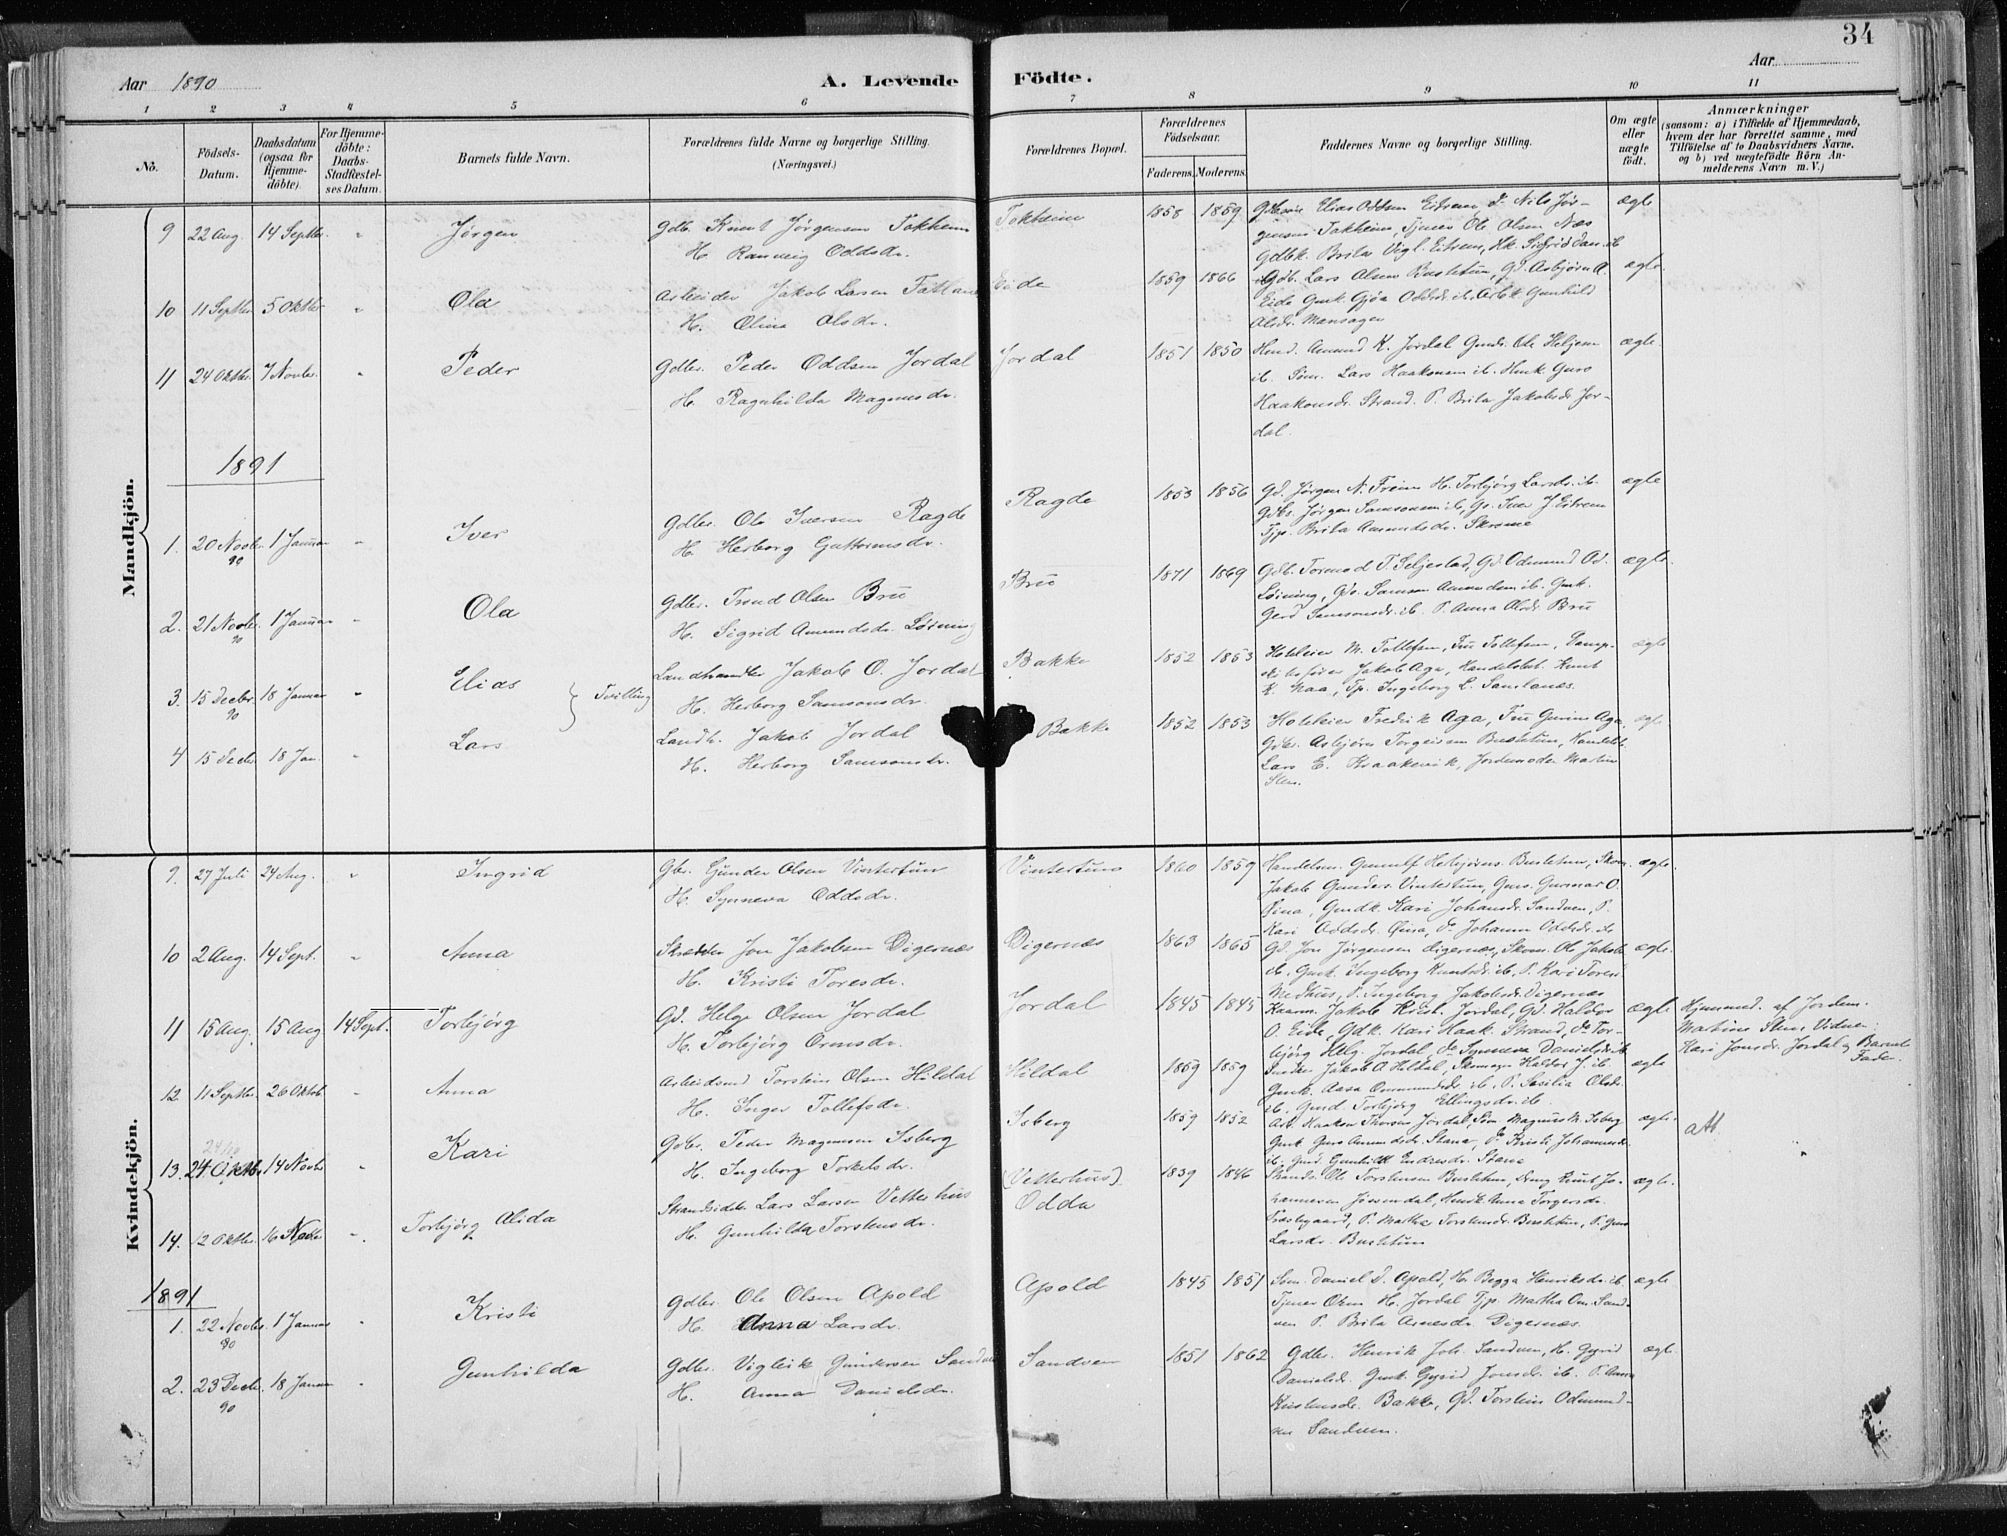 34
Aar 1890
A. Levende Födte.
Aar
1 2 3 4 5 6 7 8 9 10 11
No.
Födsels-Datum.
Daabsdatum (ogsaa for Hjemme-döbte).
For Hjemme-döbte: Daabs-Stadfæstel-ses Datum.
Barnets fulde Navn.
Forældrenes fulde Navne og borgerlige Stilling. (Næringsvei.)
Forældrenes Bopæl.
Forældrenes Födselsaar.
Faderens. Moderens.
Faddernes Navne og borgerlige Stilling.
Om ægte eller uægte födt.
Anmærkninger
(saasom: a) i Tilfælde af Hjemmedaab, hvem der har forrettet samme, med Tilföielse af to Daabsvidners Navne. og b) ved uægtefödte Börn Anmelderens Navn m. V.)
Mandkjön.
9 22 Aug. 14 Septbr. " Jørgen Gdbr. Knut Jørgensen Tokheim
H. Ranveig Oddsdr.
Tokheim 1858 1859
Elias Oddsen Eitrem Nils Jør-
gensen Tokheim, Tjener Ole Olsen Næs
ægte
10 11 Septbr 5 Oktbr " Ola Arbeider Jakob Larsen
H. Olina Olsdr.
Eide 1859 1866
Gdb. Lars Olsen Busletun, Gd. Asbjørn A.
Eide Gmk Gjøa Oddsdr. ib. Arbk Gunhild
Olsdr. Mansager
ægte
11 24 Oktbr. 7 Novbr. " Peder Gdbr. Peder Oddsen Jordal
H. Ragnhilda Magnusdr.
Jordal 1851 1850
Amund K. Jordal Ole Heljesen
ib. Lars Haakonsen ib. Guro
Haakonsdr. Strand. P. Brita Jakobsdr Jor-
dal.
ægte
1891
1. 20 Novbr. 90 1 Januar " Iver Gdbr. Ole Iversen Ragde
H. Herborg Guttormsdr.
Ragde 1853 1856
Gd. Jørgen N. Freim H. Torbjørg Larsdr. ib.
Gdbr. Jørgen Samsonsen ib, Gs. Iver J Eitrem
Tjp. Brita Amundsdr. Skrome
ægte
2. 21 Novbr. 90 1 Januar " Ola Gdbr. Trond Olsen Bru
H. Sigrid Amundsdr. Løining
Bru 1871 1869
Gdb. Tormod T. Seljestad, Gd. Odmund Od.
Løining, Gds. Samson Amundsen ib. Gmk.
Gerd Samsonsdr. ib. P. Anna Olsdr. Bru
ægte.
3. 15 Decbr. 90 18 Januar " Elias } Tvilling
Landhandler Jakob O. Jordal
H. Herborg Samsonsdr.
Bakke 1852 1853
Hoteleier M. Tollefsen, Fru Tollefsen, Damp-
skibsfører Jakob Aga, Handelsbet. Knut
K. Maa, Tp. Ingeborg L. Sandanes.
ægte
4 15 Decbr 18 Jan. " Lars Landh. Jakob Jordal
H. Herborg Samsonsdr.
Bakke 1852 1853
Hoteleier Fredrik Aga, Fru Aga,
Gdbr. Asbjørn Torgeirsen Busletun, Handelsb.
Lars E. Kraakevik, Jordemoder Martine
Sten.
ægte
Kvindekjön.
9. 27 Juli 24 Aug. " Ingrid Gbr. Gunder Olsen Vintertun
H. Synneva Oddsdr.
Vintertun 1860 1859
Handelsm. Gunnulf Busletun,
Jakob Gunders. Vintertun, Gunnar O.
Kari Johansdr. Sandven, P.
Kari Oddsdr. Johanna Oddsdr. ib
ægte.
10 2 Aug. 14 Sept. " Anna Skrædder Jon Jakobsen Digernæs
H. Kristi Toresdr.
Digernæs 1863 1865
Gd. Jon Jørgensen Digernæs, Skom. Ole Jakobs
ib. Gmk. Ingeborg Knutsdr. ib, P. Kari Tores
Medhus, P. Ingeborg Jakobsdr. Digernæs
ægte.
11 15 Aug. 15 Aug 14 Sept. Torbjørg Gd. Helge Olsen Jordal
H. Torbjørg Ormsdr.
Jordal 1845 1845
Kaarm. Jakob Krist. Jordal, Gd. Haldor
O. Eide, Gdk. Kari Haak. Strand, Do Tor-
bjørg Helg. Jordal, Do Synneva Danielsdr ib
ægte
Hjemmed. af Jordem.
Martine Sten, Vidner:
Kari Jonsdr. Jordal og Barnets
Fader.
12 11 Septbr. 26 Oktob. " Anna Arbeidsmd Torstein Olsen Hildal
H. Inger Tollefsdr.
Hildal 1869 1859
Jakob A Hildal, Skomager Haldor J. ib.
Gmk. Aasa ib. P. Sesilia Olsdr.
ib. Torbjørg Ellingsdr. ib.
ægte
13. 24 Oktbr 14 Novbr " Kari Gdbr. Peder Magnusen Isberg
H. Ingeborg Torkelsdr.
Isberg 1859 1852
Arb. Haakon Jordal Magnus M. Isberg
Gmk Guro Amundsdr. Stana, Do Kristi Johannesdr.
ib. Gmd Gunhild Endresdr. Stana
ægte.
att.
14. 12 Oktbr. 16 Novbr " Torbjørg Alida Strandsidder Lars Larsen Vetterhus
H. Gunhilda Torsteinsdr.
(Vetterhus) Odda 1839 1846
Strands. Ole Torsteinsen Busletun, Knut Jo-
hannesen Jøsendal, Anna Torgersdr.
Præstegaard, P. Martha Torsteinsdr. Busletun, P. Guro
Larsdr. Busletun
ægte.
1891
1. 22 Novbr. 90 1 Januar " Kristi Gdbr. Ole Olsen Apold
H. Anna Larsdr.
Apold 1845 1851
Daniel D. Apold, H. Begga Henriksdr. ib.
Tjener Orm H. Jordal Tjp. Martha Om. Sand-
ven P. Brita Arnesdr. Digernæs.
ægte
2. 23 Decbr. 90 18 Januar " Gunhilda Gdbr. Vigleik Gundersen Sandven
H. Anna Danielsdr.
Sandven 1851 1862
Gdbr. Henrik Joh. Sandven, H. Gyrid
Danielsdr. Gmk Gyrid Jonsdr. ib. P. Anna
Bakke, Gd. Torstein Odmund-
sen Sandven.
ægte